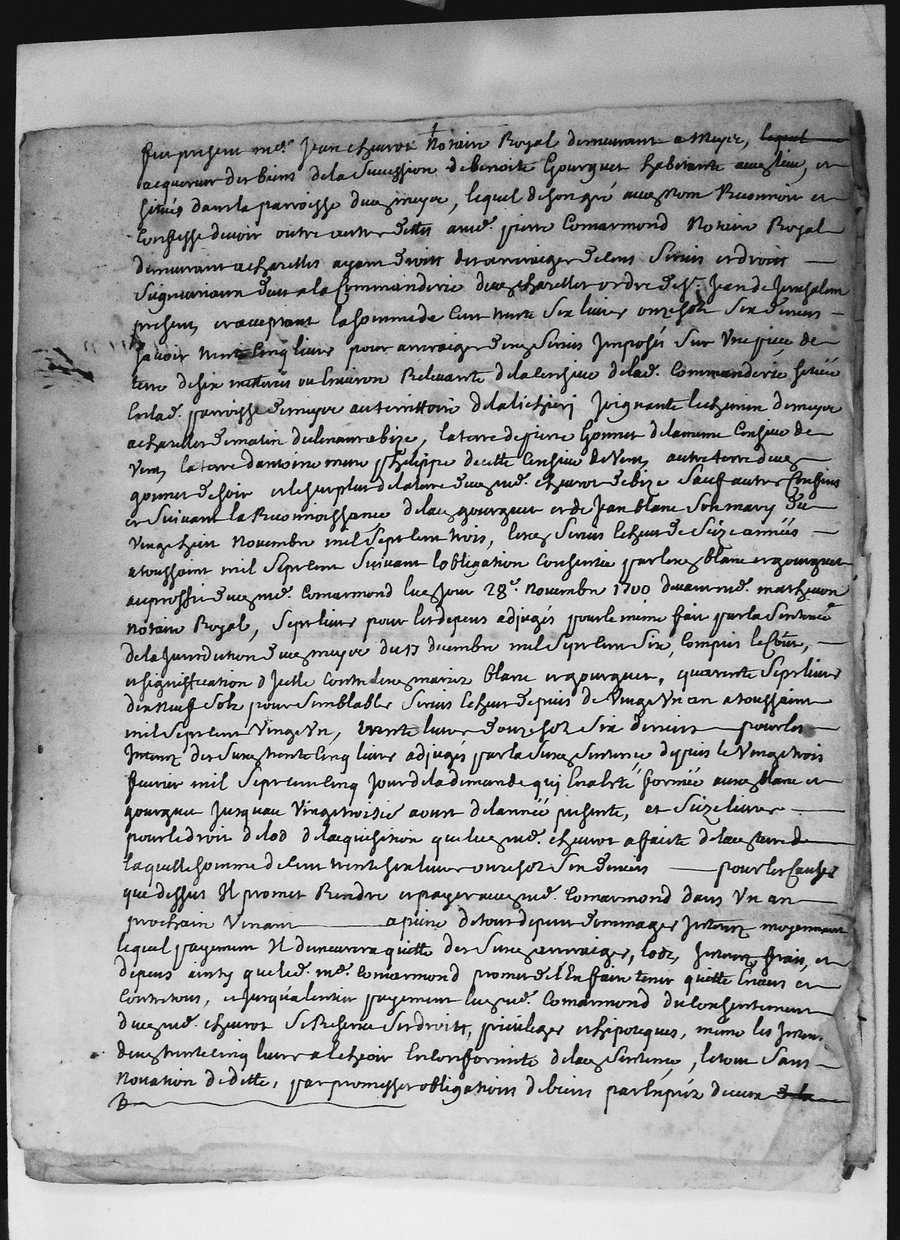 fut present me. Jean cheurot Notaire Royal demeurant a Meyré, lequel
acquereur des biens de la Succession de benoite Gourguet habitante audit lieu, et
situés dans la parroisse dud meyré, lequel de son gré aud nom Reconnoit et
Confesse devoir outre autres dettes a me. pierre Comarmond Notaire Royal
demeurant a charettes ayant droit des arreraiges de cens Servis et droits
Seigneuriaux deus a la Commanderie dud charettes ordre de St. Jean de Jerusalem
present et acceptant la somme de Cent trente Six livres onze Sols Six deniers
Savoir trente Cinq livres pour arreraiges de cens Servis Imposés Sur Une piece de
terre de Six meterés ou Environ Relevante de la Censive de lad. Commanderie Scituée
En lad. parroisse de meyré au territoire de Joignante le chemin de meyré
a charettes de matin bize, la terre de pierre Gonnet de la meme Censive de
Vent, la terre d'antoine philippe de cette Censive de Vent, autre terre dud
gonnet de Soir et le surplus de la terre dud me. cheurot de bize Sauf autres Confins
et Suivant la Reconnoissance de lad gourguet et de Jean blanc Son mary du
Vingt huit Novembre mil Sept Cent trois, lesd Servis Echeus de Seize années
a toussaint mil Sept Cent Suivant l'obligation Consentie par lesd blanc et gourguet
au proffit dud me. Comarmond led Jour 28e. Novembre 1700 devant me. mathevon
Notaire Royal, Sept livres pour les depens adjugés pour le même fait par la Sentence
de la Jurisdiction dud meyré du 17 decembre mil Sept Cent Six, Compris le Coût,
et signiffication d'Icelle Contre lesd mariez blanc et gourguet, quarante Sept livres
dix neuf Sols pour Semblables Servis Echeus depuis de Vingt Un an a toussaint
mil Sept Cent Vingt Un, trente livres onze Sols Six deniers pour les
Interets desd trente Cinq livres adjugés par la Susd Sentence depuis le Vingt trois
fevrier mil Sept Cent Cinq Jour de la demande qui En a eté formée ausd blanc et
gourguet Jusqu'au Vingt troisie. aoust de l'année presente, et Seize livres
pour le droit de lod de l'acquisition que led me. cheurot a faite de lad terre de
laquelle somme de Cent trente Six livres onze Sols Six deniers pour les Causes
que dessus Il promet Rendre et payer aud me. Comarmond dans Un an
prochain Venant a peine de tous depens dommages Interets moyennant
lequel payement Il demeurera quitte desd arreraiges, lods, Interets, frais, et
depens ainsy que led. me. Comarmond promet de l'En faire tenir quitte Envers et
Contre tous, et Jusqu'a l'entier payement led me. Comarmond du Consentement
dud me. cheurot Se Reserve Ses droits, privileges et hipoteques, même les Interets
desd trente Cinq livres a Echeoir En Conformité de lad Sentence, le tout Sans
Novation de dette, par promesses obligations de biens par Exprez de ceux